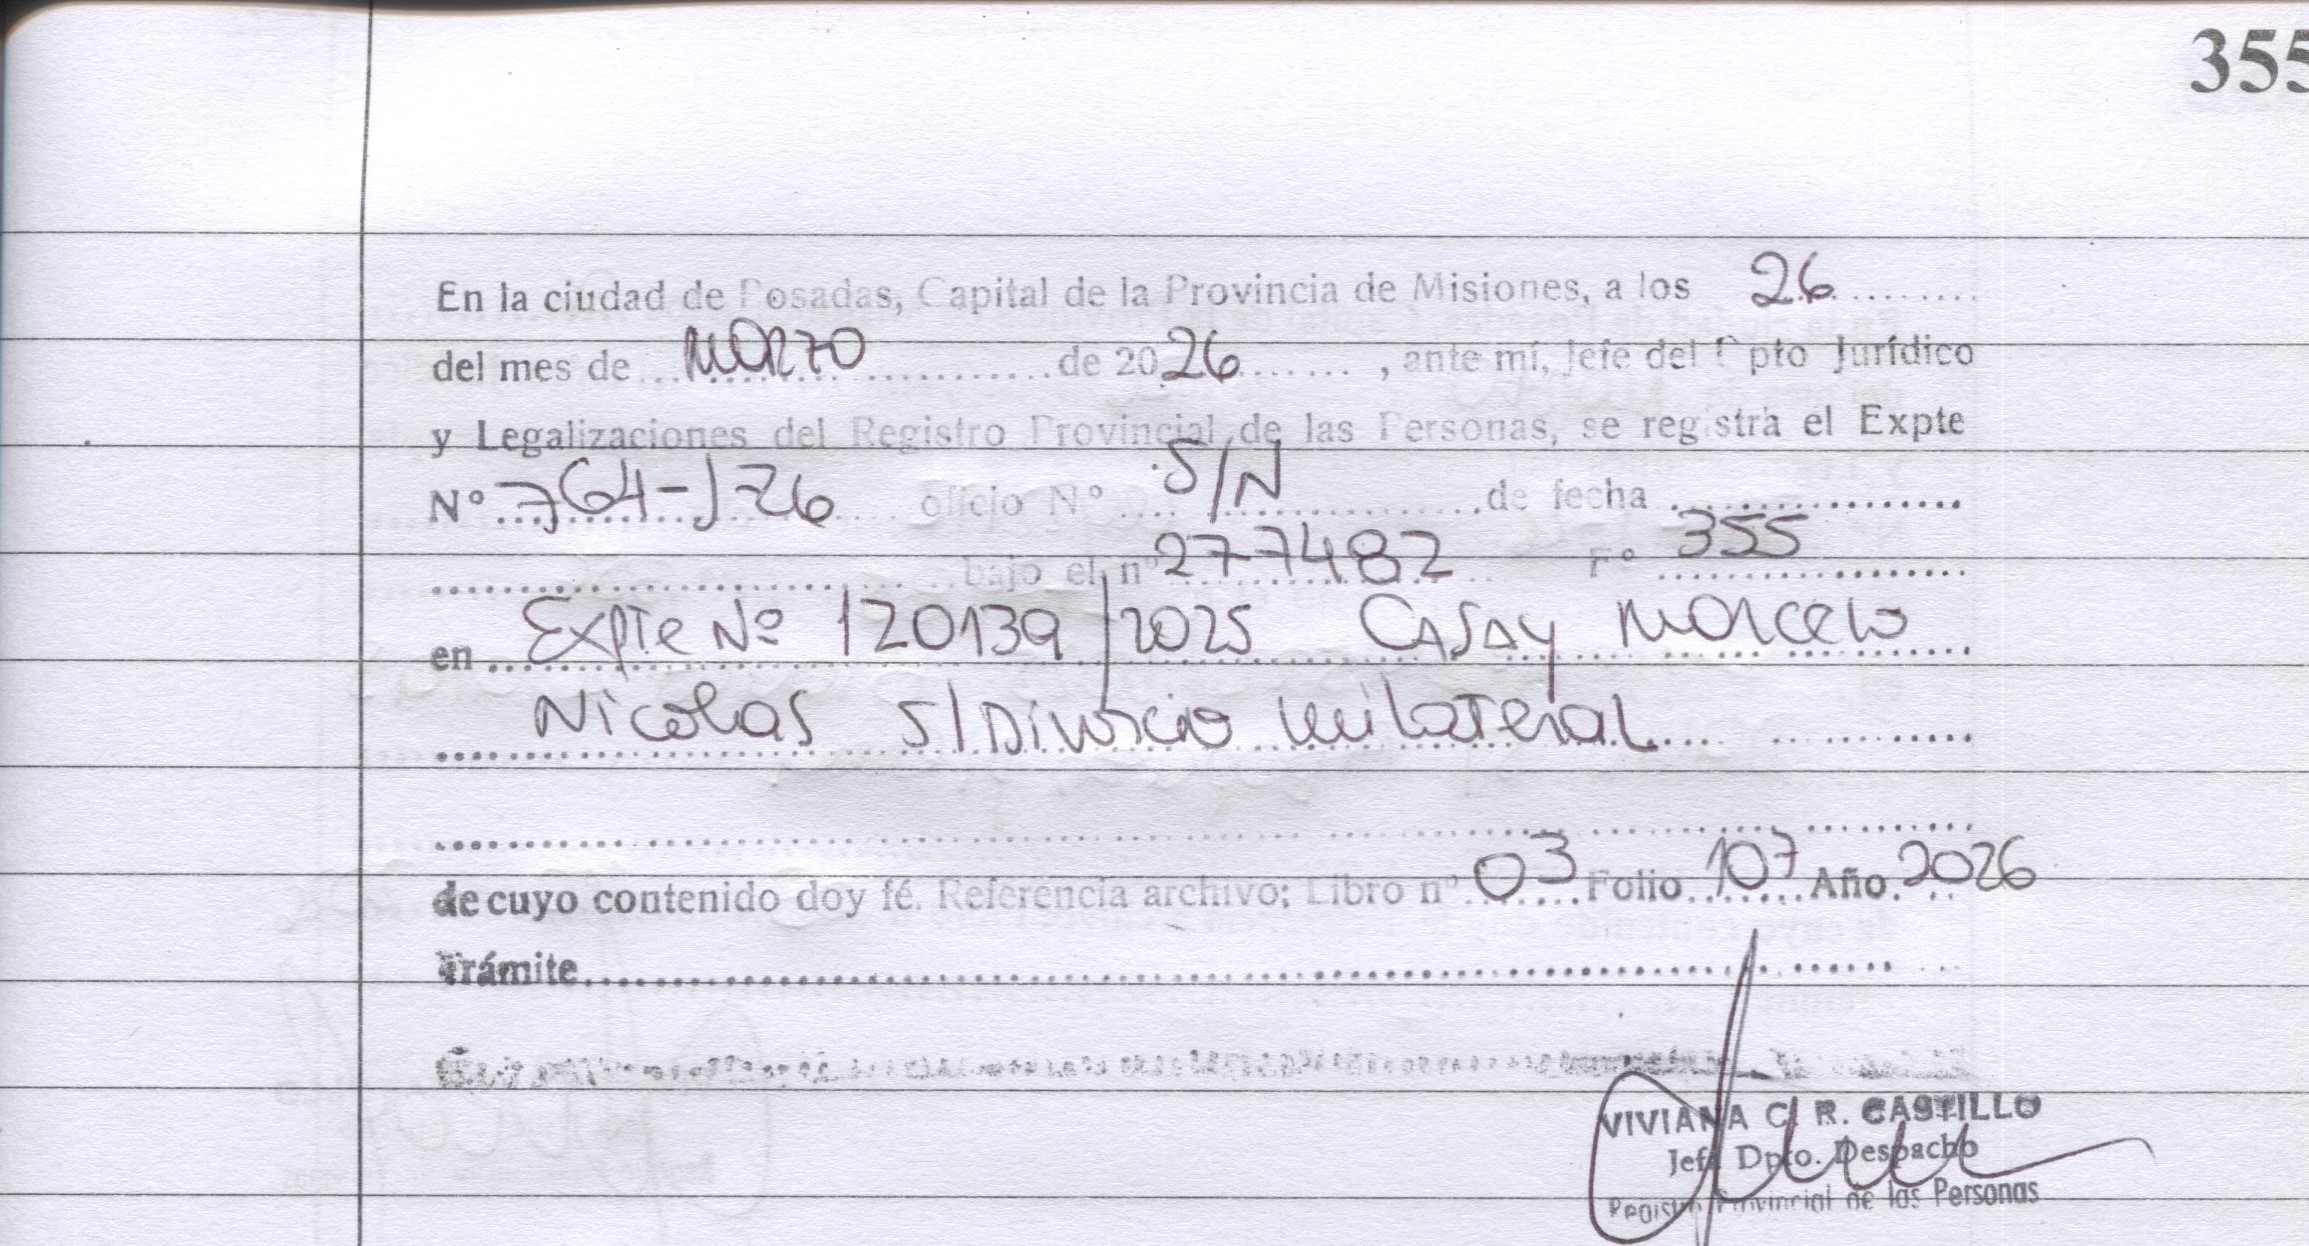 355
En la ciudad de Posadas, Capital de la Provincia de Misiones, a los 26
del mes de Marzo de 2026, ante mí, Jefe del Dpto Jurídico
y Legalizaciones del Registro Provincial de las Personas, se registra el Expte
Nº 764-J-26 oficio Nº S/N de fecha
bajo el nº 277482 Fº 355
en Expte Nº 120139/2025 Casay Marcelo
Nicolas S/Divorcio Unilateral
de cuyo contenido doy fé. Referencia archivo; Libro nº 03 Folio 107 Año 2026
Trámite
VIVIANA C. R. CASTILLO
Jefe Dpto. Despacho
Registro Provincial de las Personas